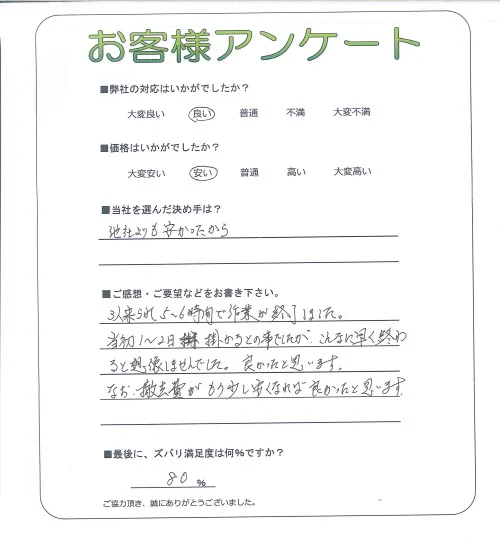 お客様アンケート
■弊社の対応はいかがでしたか？
大変良い 良い 普通 不満 大変不満
■価格はいかがでしたか？
大変安い 安い 普通 高い 大変高い
■当社を選んだ決め手は？
他社よりも安かったから
■ご感想・ご要望などをお書き下さい。
来られ、5〜6時間で作業が終了しました。
当初1〜2日 掛かるとの事でしたが、こんなに早く終わ
ると想像しませんでした。良かったと思います。
なお、撤去費がもう少し安くなれば良かったと思います。
■最後に、ズバリ満足度は何%ですか？
80 %
ご協力頂き、誠にありがとうございました。